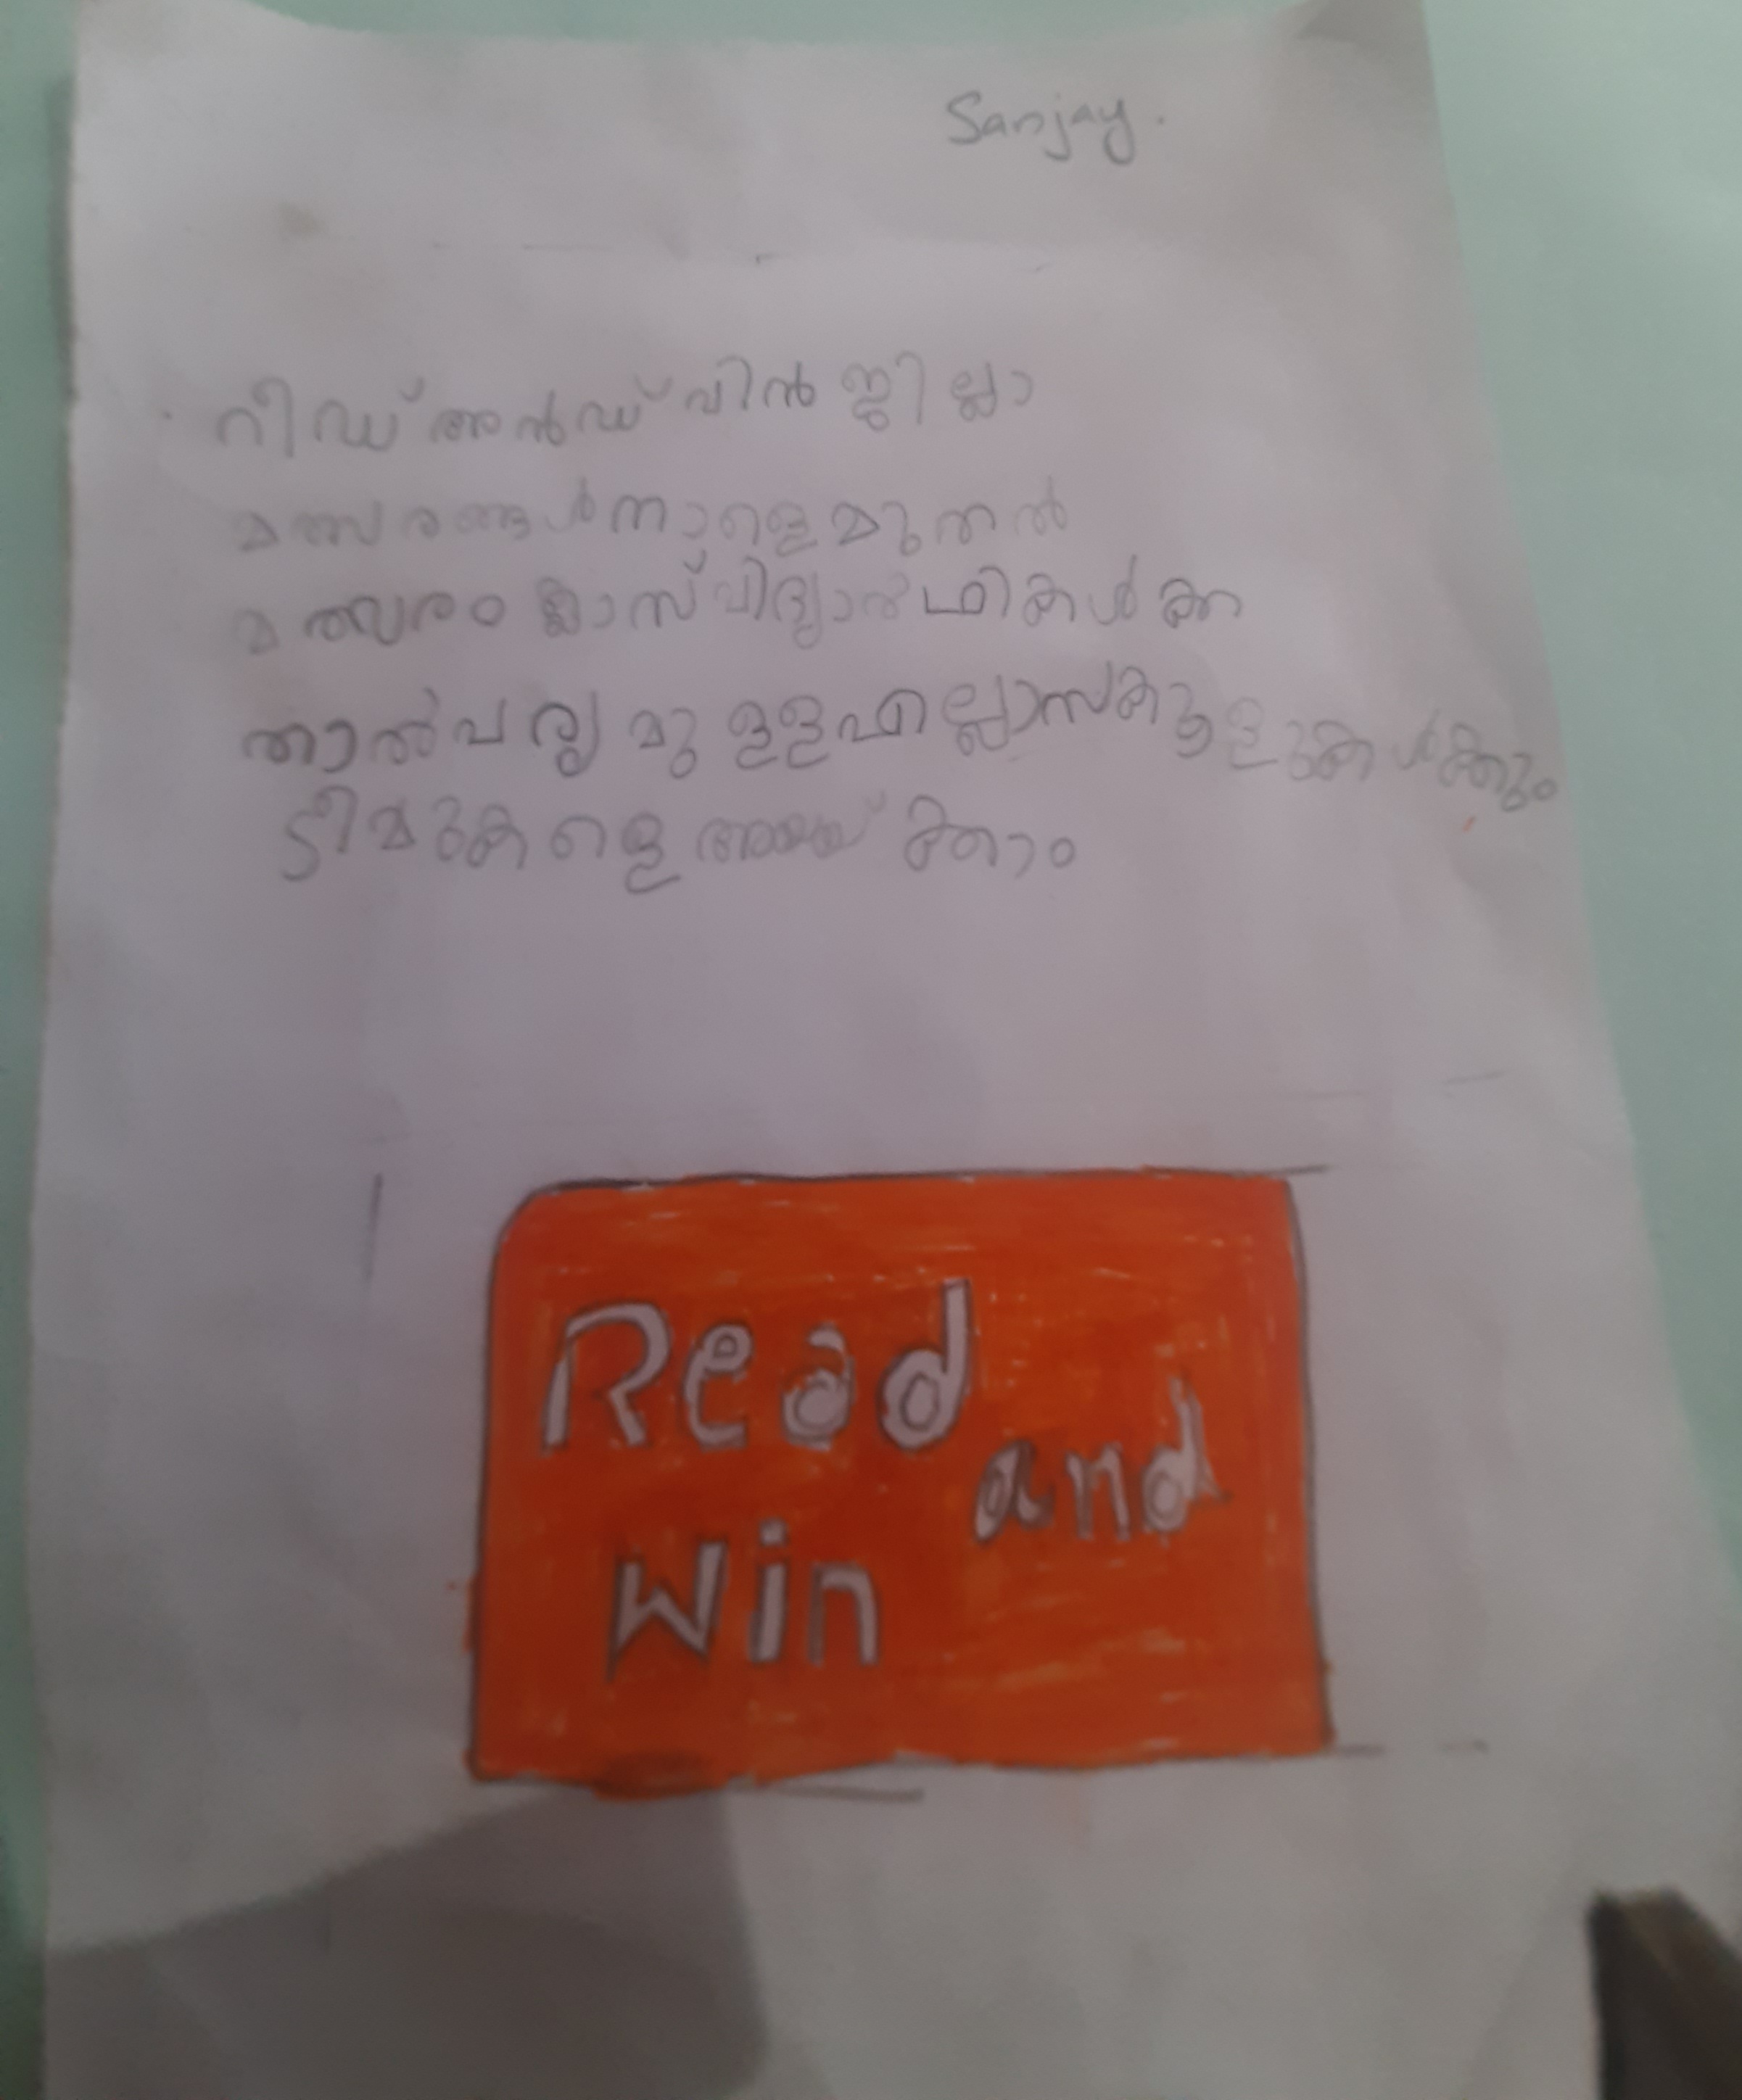 Sanjay.
റീഡ് അൻഡ് വിൻ ജില്ലാ
മത്സരങ്ങൾ നാളെ മുതൽ
മത്സരം ക്ലാസ് വിദ്യാർഥികൾക്ക
താൽപര്യമുളള എല്ലാ സകൂളുകൾക്കും
ടീമുകളെ അയയ്ക്കാം
Read
and
Win